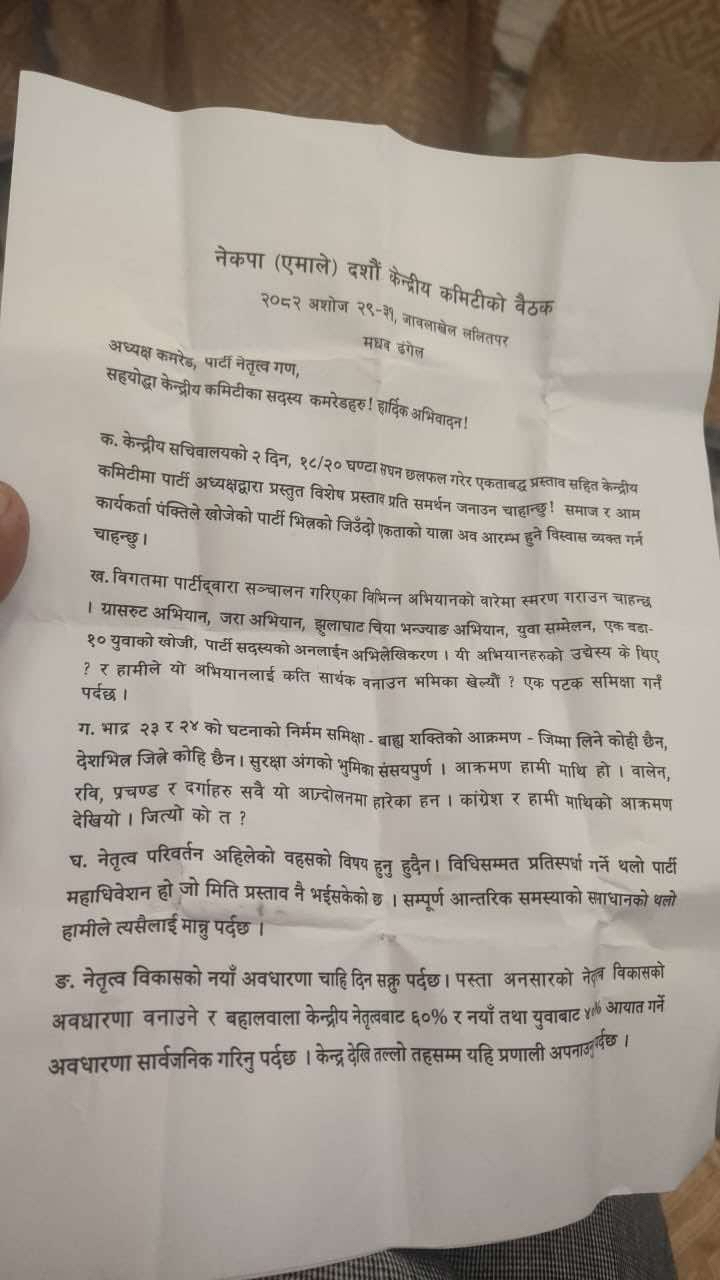 नेकपा (एमाले) दशौं केन्द्रीय कमिटीको वैठक
२०८२ अशोज २९-३१, जावलाखेल ललितपर
मधव ढंगेल
अध्यक्ष कमरेड, पार्टी नेतृत्व गण,
सहयोद्धा केन्द्रीय कमिटीका सदस्य कमरेडहरु! हार्दिक अभिवादन!
क. केन्द्रीय सचिवालयको २ दिन, १८/२० घण्टा सघन छलफल गरेर एकताबद्ध प्रस्ताव सहित केन्द्रीय
कमिटीमा पार्टी अध्यक्षद्वारा प्रस्तुत विशेष प्रस्ताव प्रति समर्थन जनाउन चाहान्छु! समाज र आम
कार्यकर्ता पंक्तिले खोजेको पार्टी भित्रको जिउँदो एकताको यात्रा अव आरम्भ हुने विस्वास व्यक्त गर्न
चाहन्छु।
ख. विगतमा पार्टीद्वारा सञ्चालन गरिएका विभिन्न अभियानको वारेमा स्मरण गराउन चाहन्छ
। ग्रासरुट अभियान, जरा अभियान, झुलाघाट चिया भन्ज्याङ अभियान, युवा सम्मेलन, एक वडा-
१० युवाको खोजी, पार्टी सदस्यको अनलाईन अभिलेखिकरण । यी अभियानहरुको उद्येस्य के थिए
? र हामीले यो अभियानलाई कति सार्थक वनाउन भमिका खेल्यौं ? एक पटक समिक्षा गर्नं
पर्दछ ।
ग. भाद्र २३ र २४ को घटनाको निर्मम समिक्षा - बाह्य शक्तिको आक्रमण - जिम्मा लिने कोही छैन,
देशभित्र जित्ने कोहि छैन। सुरक्षा अंगको भुमिका संसयपुर्ण । आक्रमण हामी माथि हो । वालेन,
रवि, प्रचण्ड र दर्गाहरु सवै यो आन्दोलनमा हारेका हन । कांग्रेश र हामी माथिको आक्रमण
देखियो । जित्यो को त ?
घ. नेतृत्व परिवर्तन अहिलेको वहसको विषय हुनु हुदैन। विधिसम्मत प्रतिस्पर्धा गर्ने थलो पार्टी
महाधिवेशन हो जो मिति प्रस्ताव नै भईसकेको छ । सम्पूर्ण आन्तरिक समस्याको समाधानको थलो
हामीले त्यसैलाई मान्नु पर्दछ ।
ङ. नेतृत्व विकासको नयाँ अवधारणा चाहि दिन सक्नु पर्दछ। पस्ता अनसारको नेतृत्व विकासको
अवधारणा वनाउने र बहालवाला केन्द्रीय नेतृत्वबाट ६०% र नयाँ तथा युवाबाट ४०% आयात गर्ने
अवधारणा सार्वजनिक गरिनु पर्दछ । केन्द्र देखि तल्लो तहसम्म यहि प्रणाली अपनाउनु पर्दछ ।